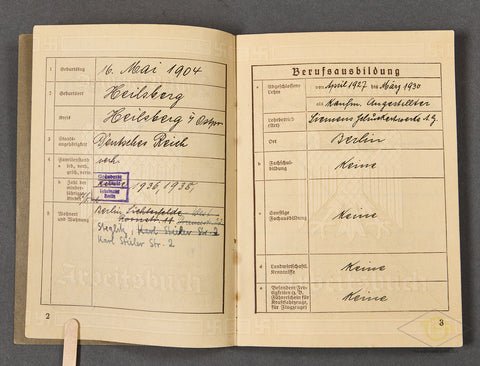 1 Geburtstag 16. Mai 1904
2 Geburtsort Heilsberg
Kreis Heilsberg / Ostpr.
3 Staatsangehörigkeit Deutsches Reich
4 Familienstand verh.
a led., verh., gesch., verw.
b Zahl der minderjährigen Kinder 1936, 1938
5 Wohnort und Wohnung Berlin Lichterfelde
Steglitz, Karl Stieler Str. 2
Karl Stieler Str. 2
Arbeitsbuch
2
Berufsausbildung
a Abgeschlossene Lehre von April 1927 bis März 1930
als Kaufm. Angestellter
Lehrbetrieb (Art) Siemens Schuckertwerke A.G.
Ort Berlin
b Fachschulbildung Keine
c Sonstige Fachausbildung Keine
d Landwirtschaftl. Kenntnisse Keine
e Besondere Fertigkeiten (z. B. Führerschein für Kraftfahrzeuge, für Flugzeuge) Keine
3